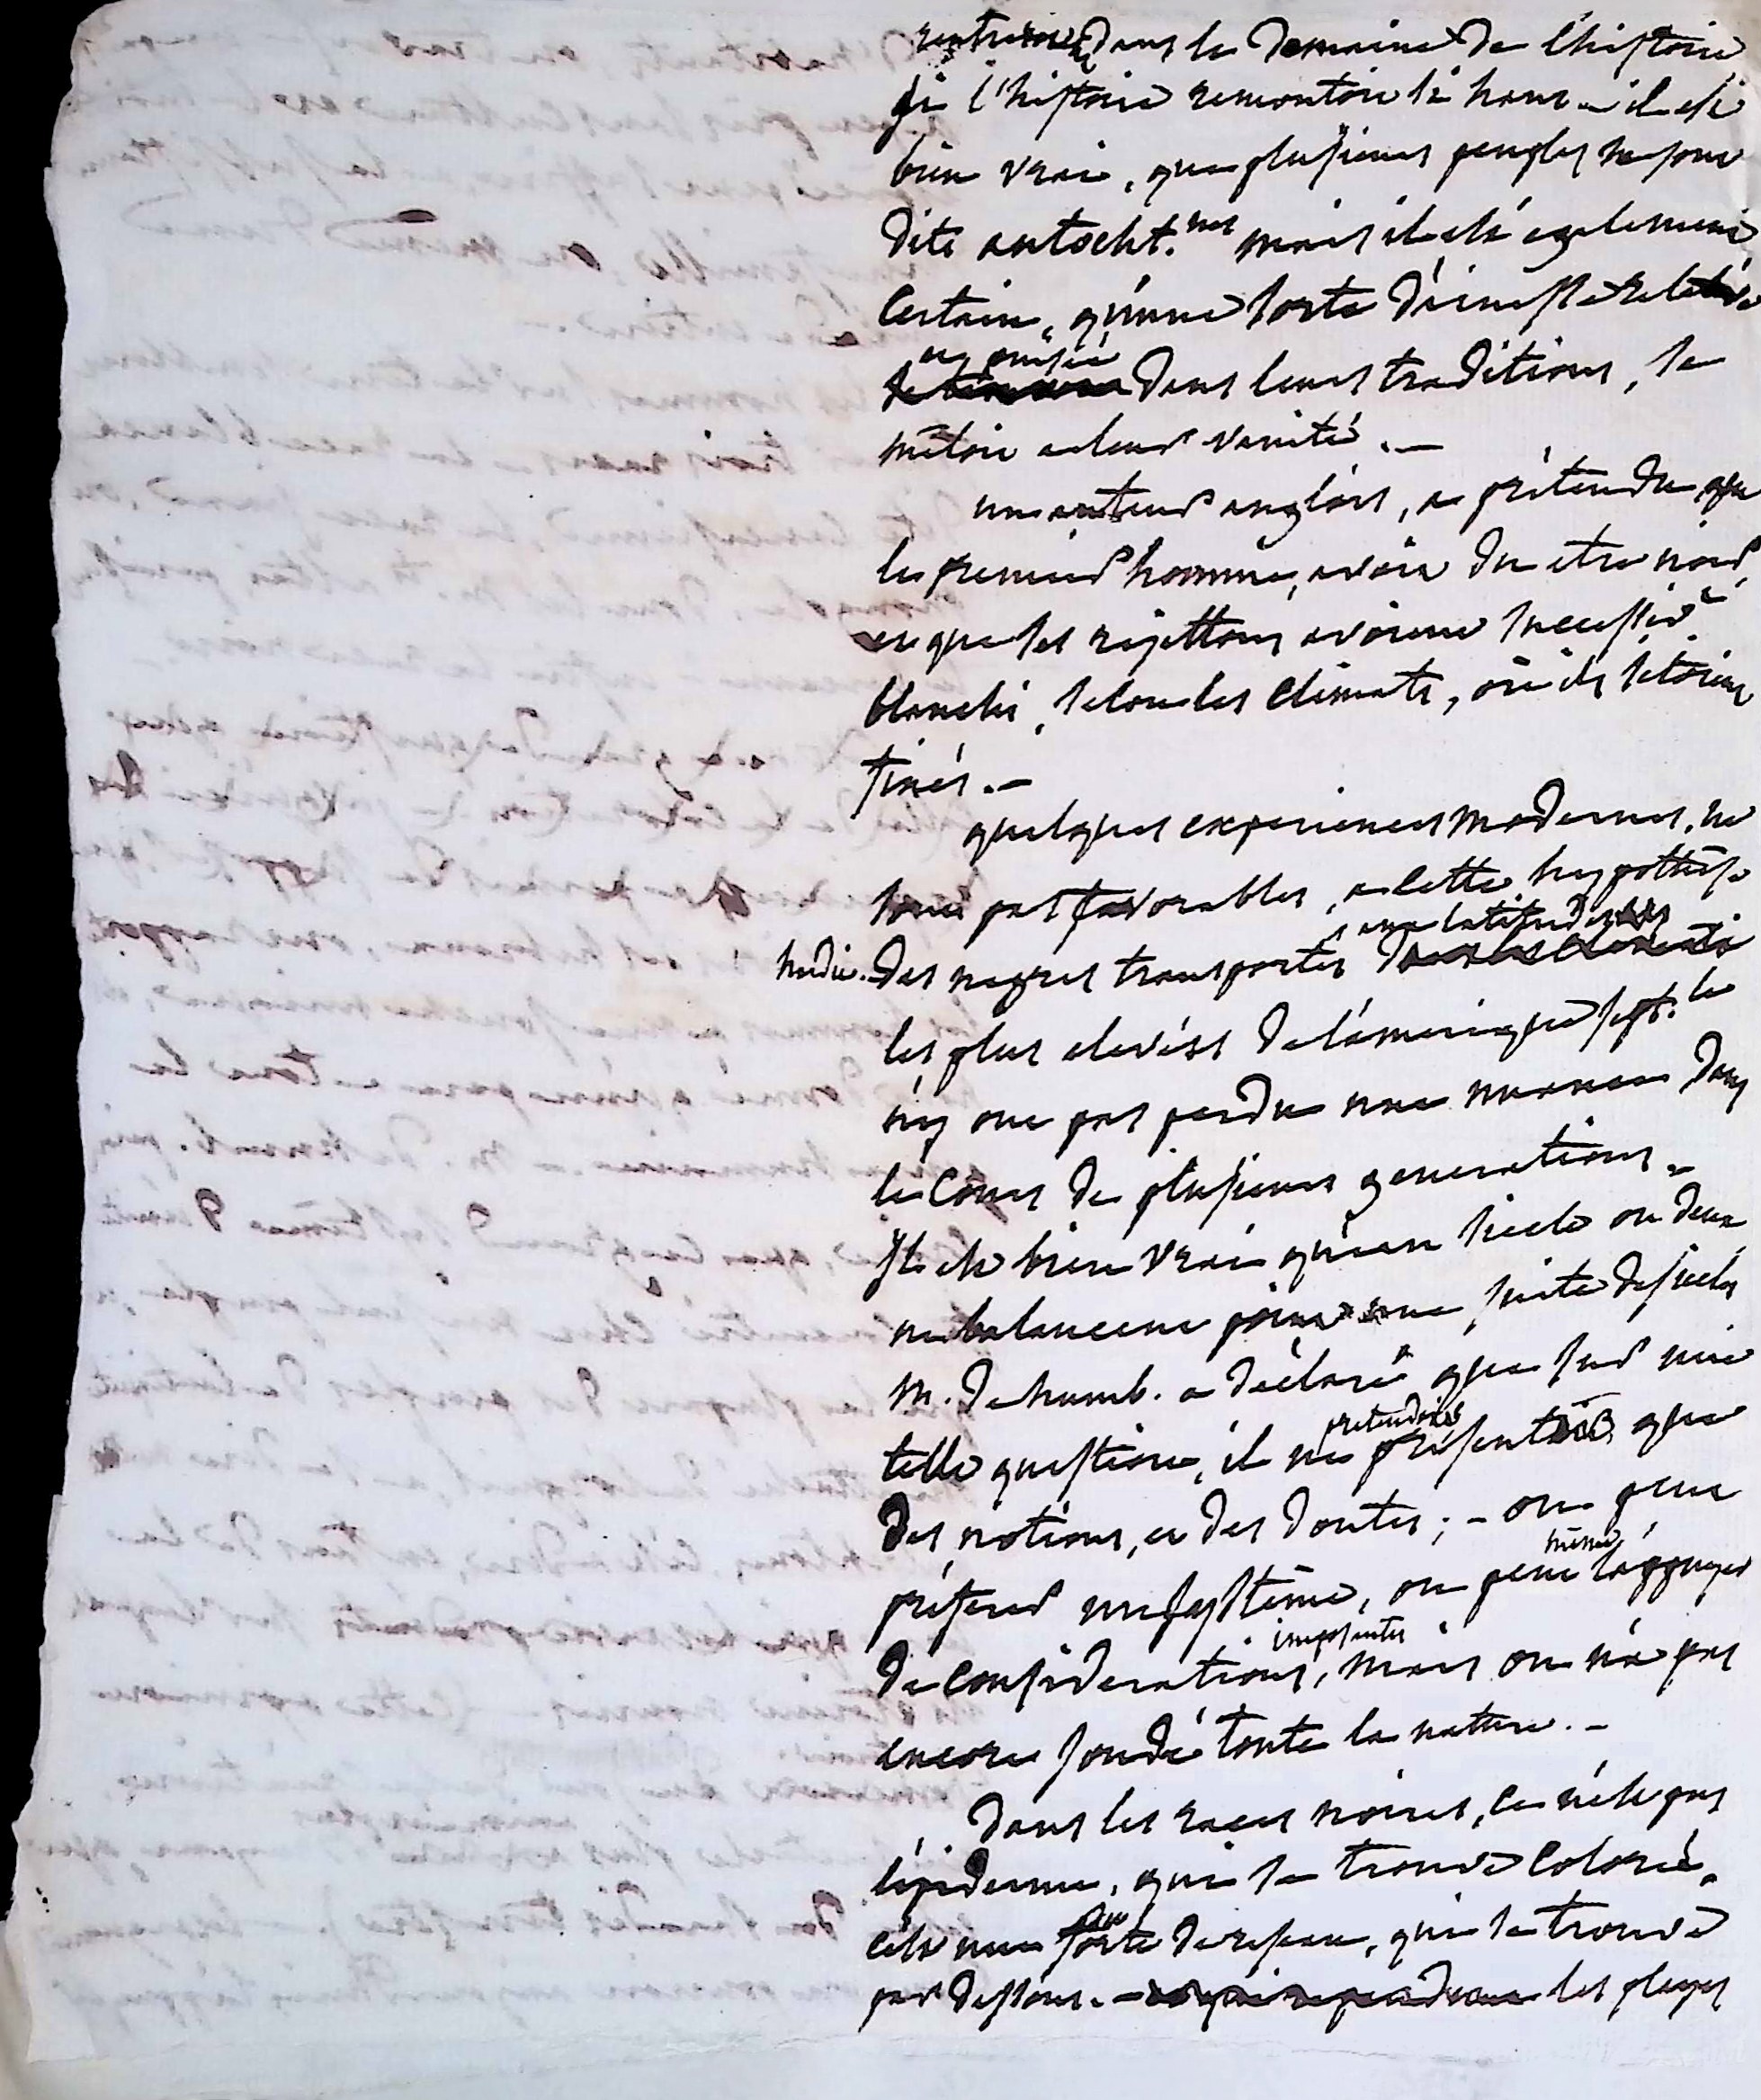 dans le domaine de l'histoire
si l'histoire remontoit si haut – il est
bien vrai, que plusieurs peuples se sont
dits autocht.nes mais il est egalement
certain, qu'une sorte d'
dans leurs traditions, se
mêloit a leur vanité. –
un auteur anglois, a prétendu que
le premier homme, avoit du etre noir,
et que ses rejettons avoient successivt
blanchi, selon les climats, où ils s'etoient
fixés. –
quelques experiences modernes, ne
sont pas favorables, a cette hypothèse
aux latitudes
des negres transportés
les plus elevées de l'amerique sept.le
n'y ont pas perdu une nuance dans
le cours de plusieurs generations –
Il est bien vrai qu'un siecle ou deux
ne balancent point une suite de siecles
M. de humb. a déclaré que sur une
pretendoit
telle question, il ne présenter que
des notions, et des doutes ; – on peut
même
préferer un systême, on peut l'appuyer
imposantes
de considerations, mais on n'a pas
encore sondé toute la nature. –
dans les races noires, ce n'est pas
l'epiderme, qui se trouve coloré,
c'est une sorte de reseau, qui se trouve
par dessous. – les plages